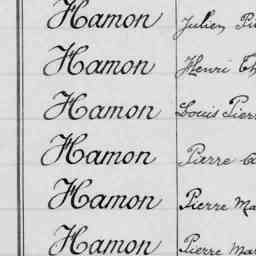 Hamon Julien
Hamon Henri
Hamon Louis Pierre
Hamon Pierre
Hamon Pierre
Hamon Pierre